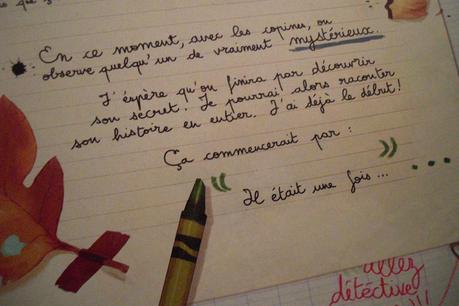 En ce moment, avec les copines, on
observe quelqu'un de vraiment mystérieux.
J'espère qu'on finira par découvrir
son secret. Je pourrai alors raconter
son histoire en entier. J'ai déjà le début !
Ça commencerait par :
« Il était une fois... » ...
allez
détective